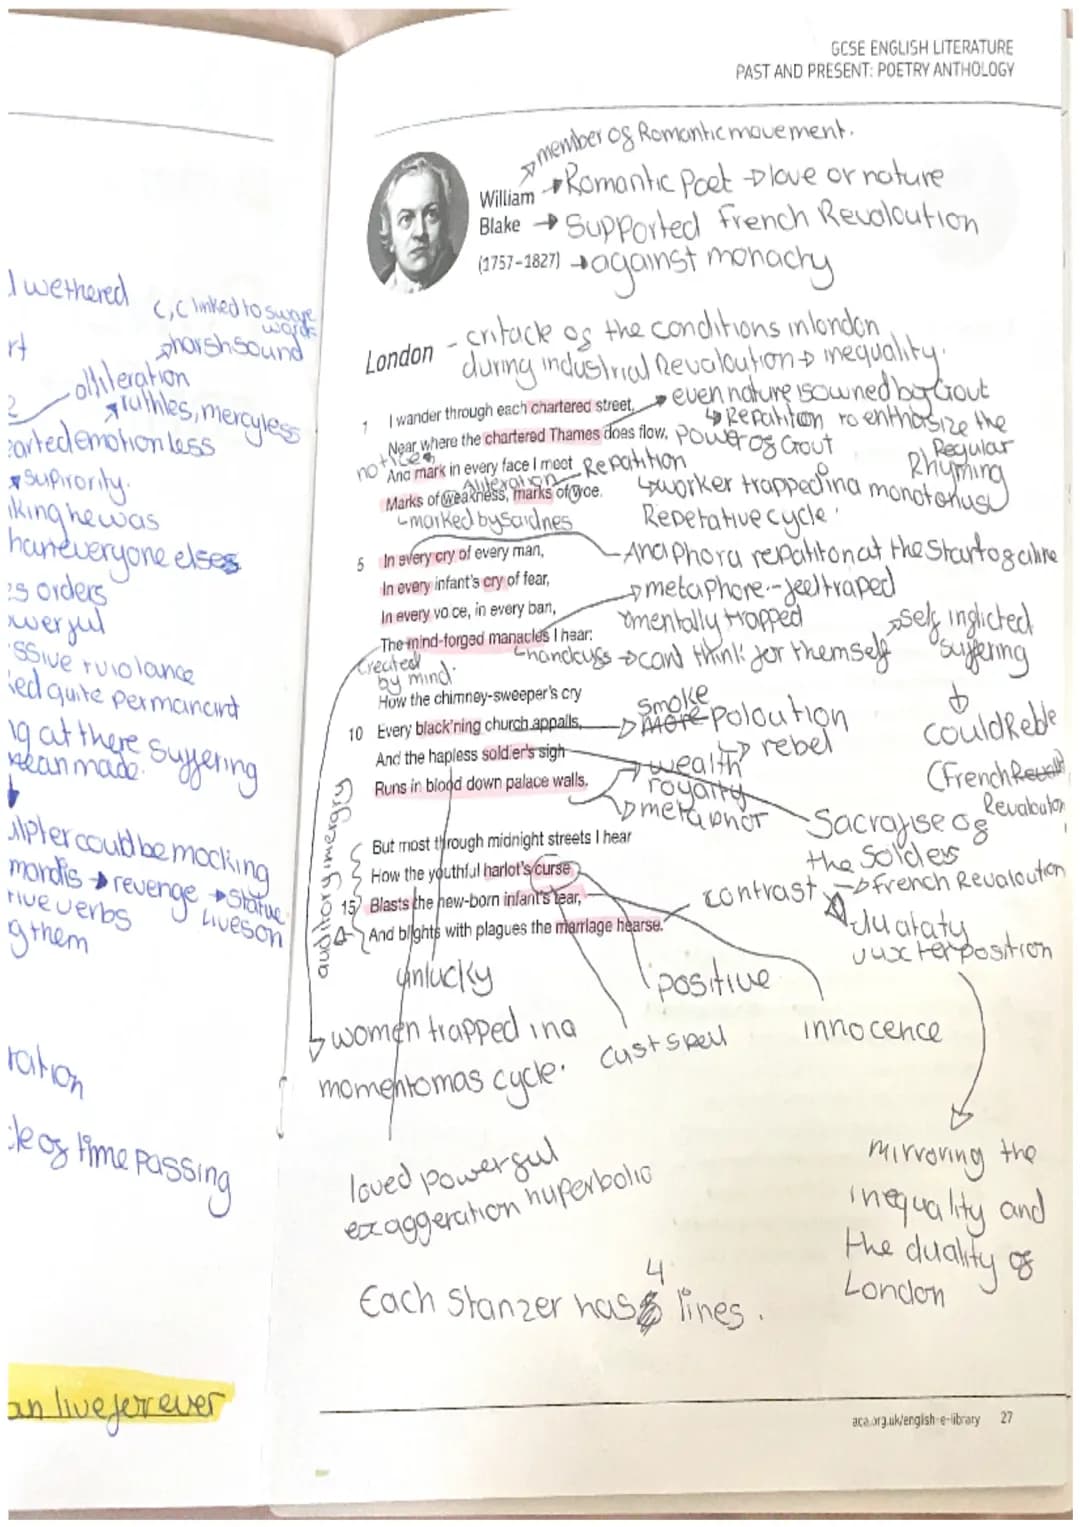 GCSE ENGLISH LITERATURE
PAST AND PRESENT: POETRY ANTHOLOGY
member og Romantic movement.
William
Blake
(1757-1827)
Romantic Poet → love or nature
→ Supported french Revaloution
→ against monachy
London
- critack og the conditions in london
during industrial Revaloution → inequality.
1 I wander through each chartered street,
even nature is owned by Gout
Repatition to enthorsize the
Near where the chartered Thames does flow,
power og Gout
notices
And mark in every face I meet
Repatition
Regular
Rhyming
Aliteration
Marks of weakness, marks of woe.
worker trapped in a monotonusy
Repetative cycle.
marked by saidnes
5 In every cry of every man,
Anaphora repatiton at the Start og a line
In every infant's cry of fear,
metaphore - feel traped
In every vo ce, in every ban,
mentally trapped
The mind-forged manacles I hear:
handcuss → cant think for themself
self inglicted
suffering
created
by mind.
could Reble
(French
Revaloution
How the chimney-sweeper's cry
10 Every black'ning church appalls,
smoke
poloution
rebel
And the hapless soldier's sigh
Runs in blood down palace walls.
wealth
royalty
metaphor
Sacrafise og
the Solders
→ french Revaloution
But most through midnight streets I hear
How the youthful harlot's curse
15 Blasts the new-born infant's tear,
And blights with plagues the marriage hearse.
auditory imergry
contrast
duataty
juxterposition
unlucky
positive
innocence
cust spell
women trapped in a
momentomas cycle.
loved powerful
exaggeration huperbolic
mirroring the
inequality and
the duality of
London
Each Stanzer has 4 lines.
aca.org.uk/english-e-library 27
l wethered
c,c linked to sware
words
harsh sound
rt
alliteration
ruthles, mercyless
earted emotionless
supirority.
iking he was
han everyone elses
es orders
owerful
ssive + violance
ied quite permanant
ng at there suffering
mean made.
ulpter could be mocking
mandis → revenge → Statue
lives on
tive verbs
g them
ration
cle og time passing
an live forrever